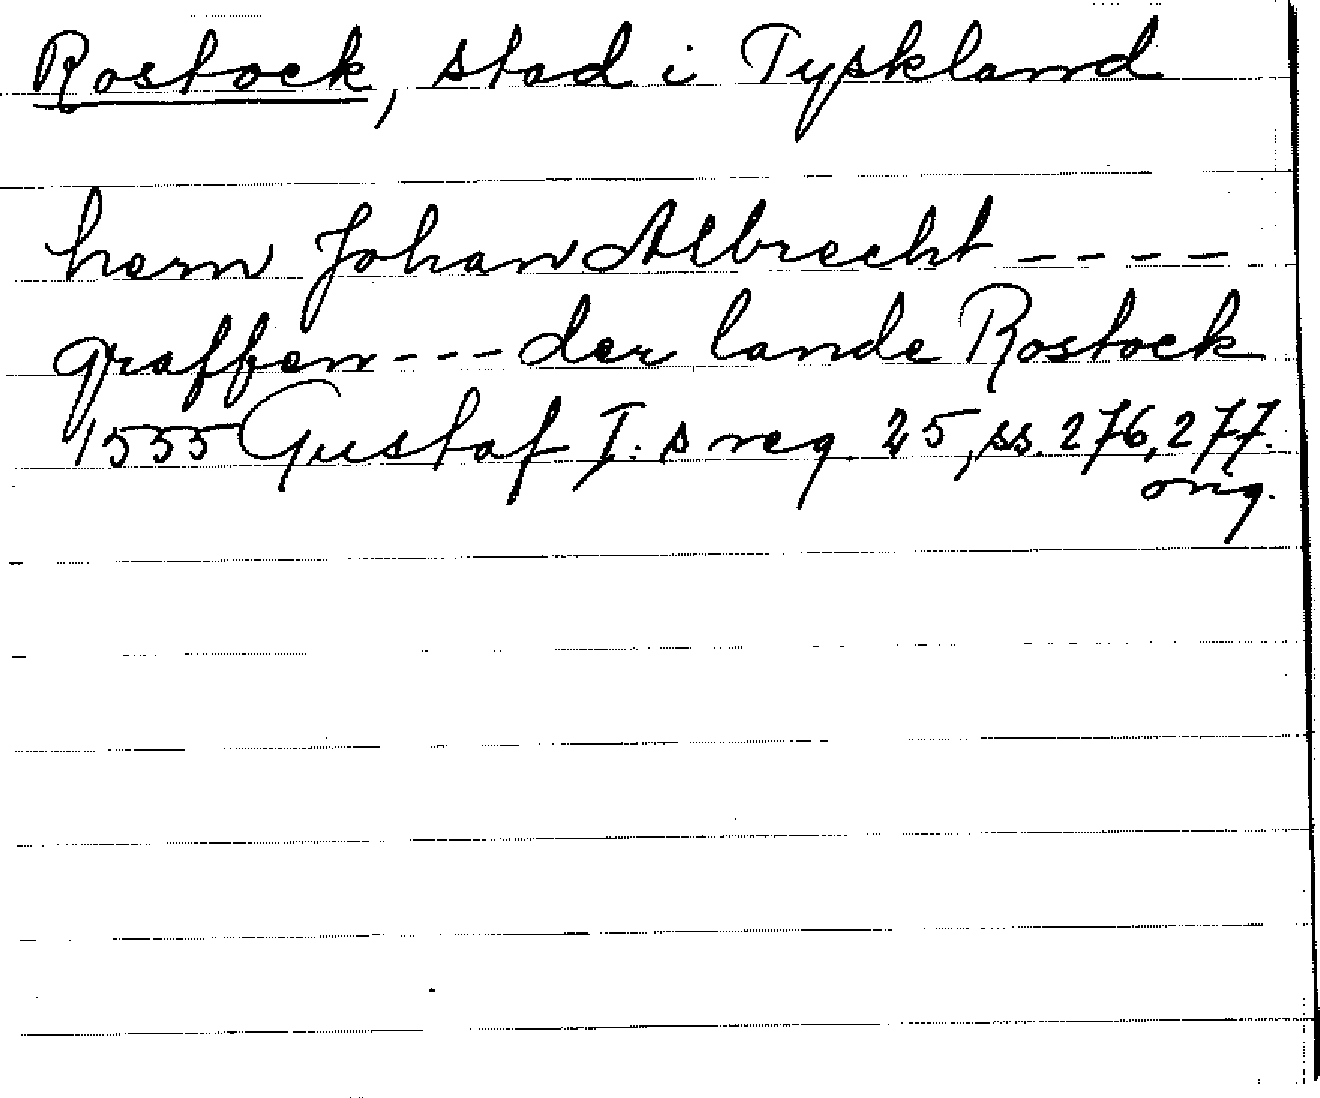 Rostock, stad i Tyskland
hern Johan Albrecht ----
graffen --- der lande Rostock
1555 Gustaf I:s reg. 25, ss. 276, 277.
orig.